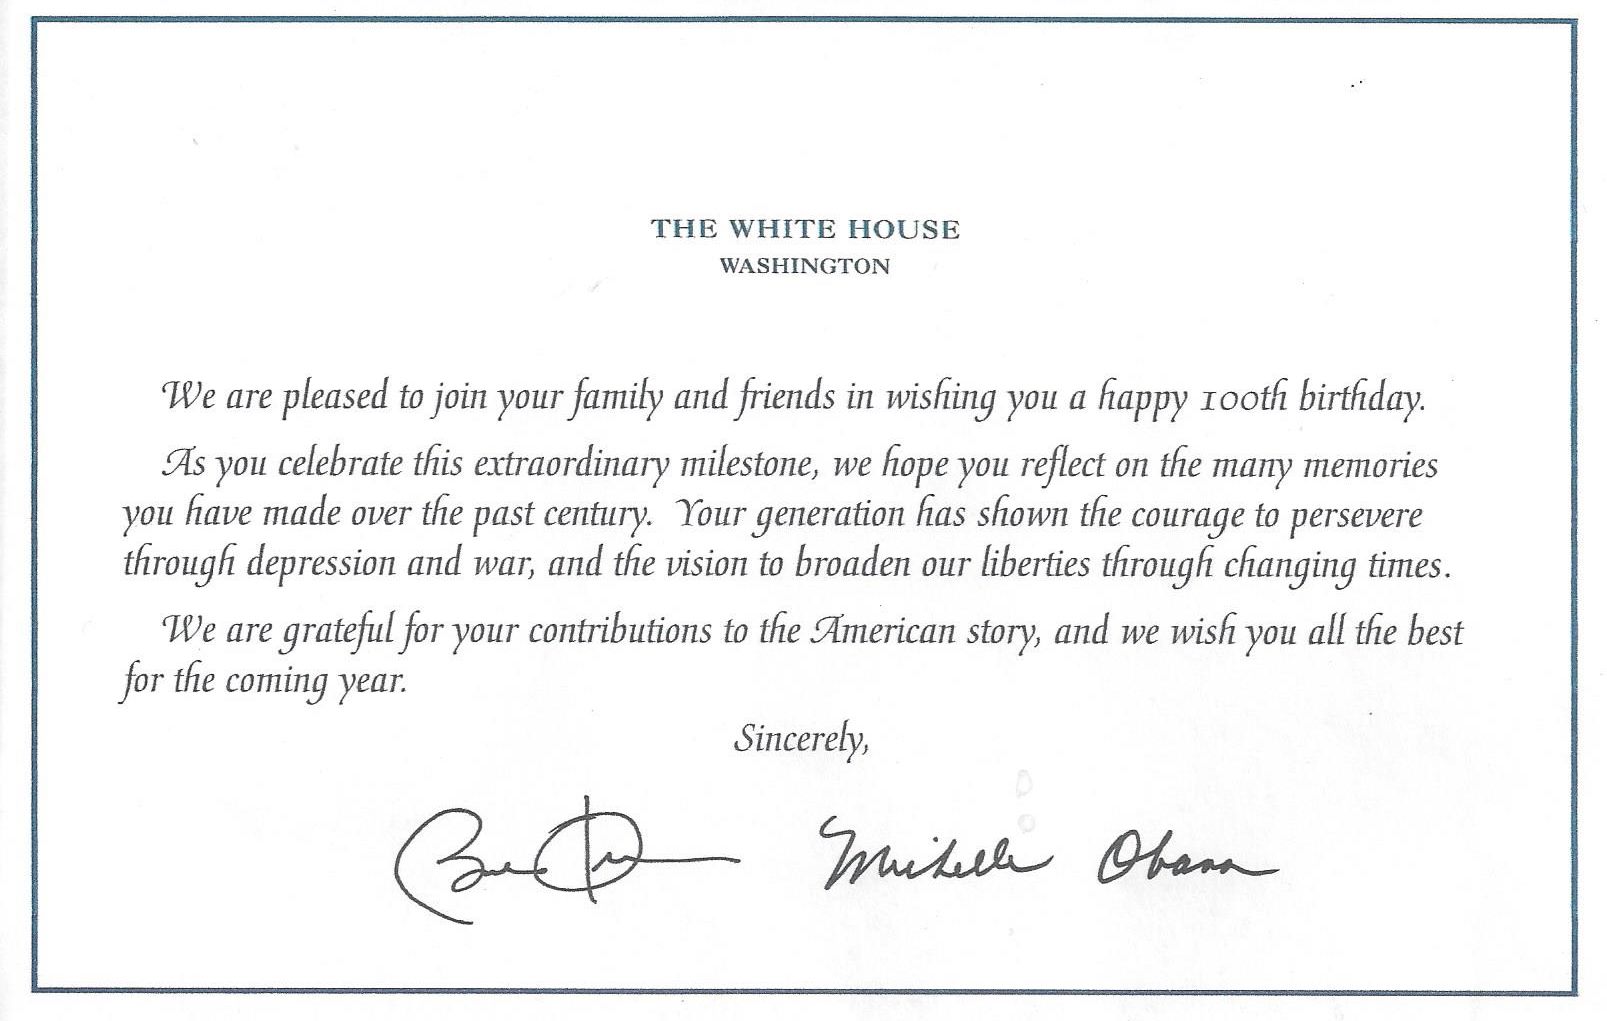 THE WHITE HOUSE
WASHINGTON
We are pleased to join your family and friends in wishing you a happy 100th birthday.
As you celebrate this extraordinary milestone, we hope you reflect on the many memories
you have made over the past century.  Your generation has shown the courage to persevere
through depression and war, and the vision to broaden our liberties through changing times.
We are grateful for your contributions to the American story, and we wish you all the best
for the coming year.
Sincerely,
Michelle Obama